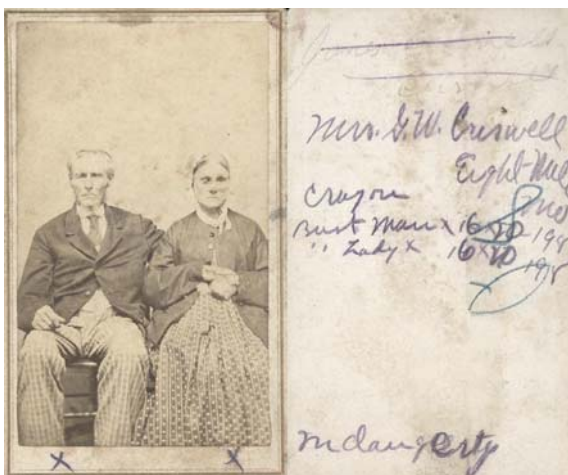 Mrs. G. W. Criswell
Eight Mile
Mo
Crayon
Bust Man x 16x20 198
" Lady x 16x20 198
McDaugherty
x x